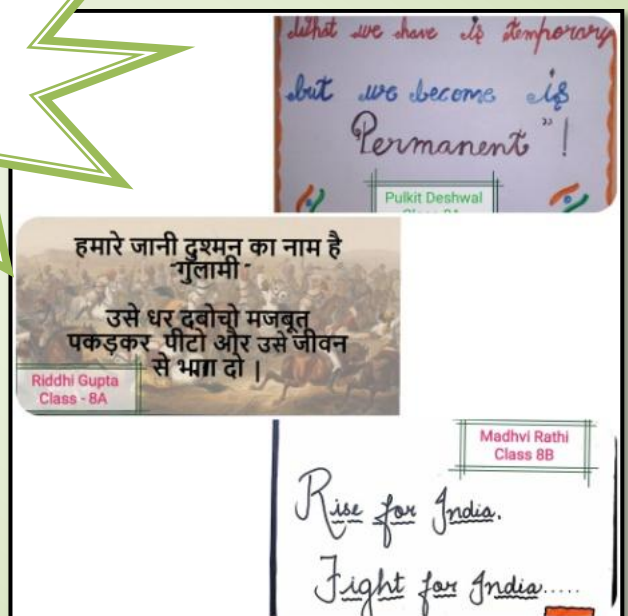 What we have is temporary
but we become is
Permanent"!
Pulkit Deshwal
हमारे जानी दुश्मन का नाम है
"गुलामी"
उसे धर दबोचो मजबूत
पकड़कर पीटो और उसे जीवन
से भगा दो |
Riddhi Gupta
Class - 8A
Madhvi Rathi
Class 8B
Rise for India.
Fight for India.....